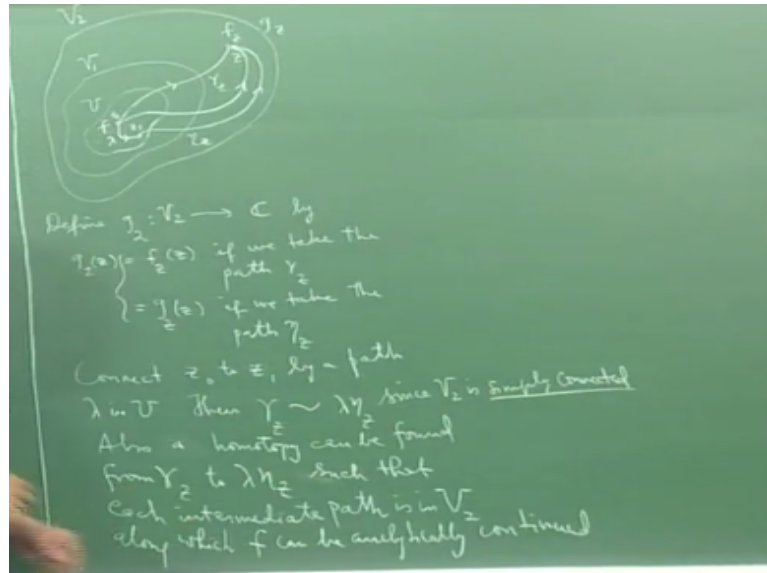 V₂
f_z
g_z
V₁
z
γ_z
U
f
z₁
λ
η_z
Define g₂ : V₂ ⟶ ℂ by
g₂(z) = f_z(z) if we take the
path γ_z
= g_z(z) if we take the
path η_z
Connect z₀ to z₁ by a path
λ in U Then γ_z ~ λη_z since V₂ is simply connected
Also a homotopy can be found
from γ_z to λη_z such that
each intermediate path is in V₂
along which f can be analytically continued